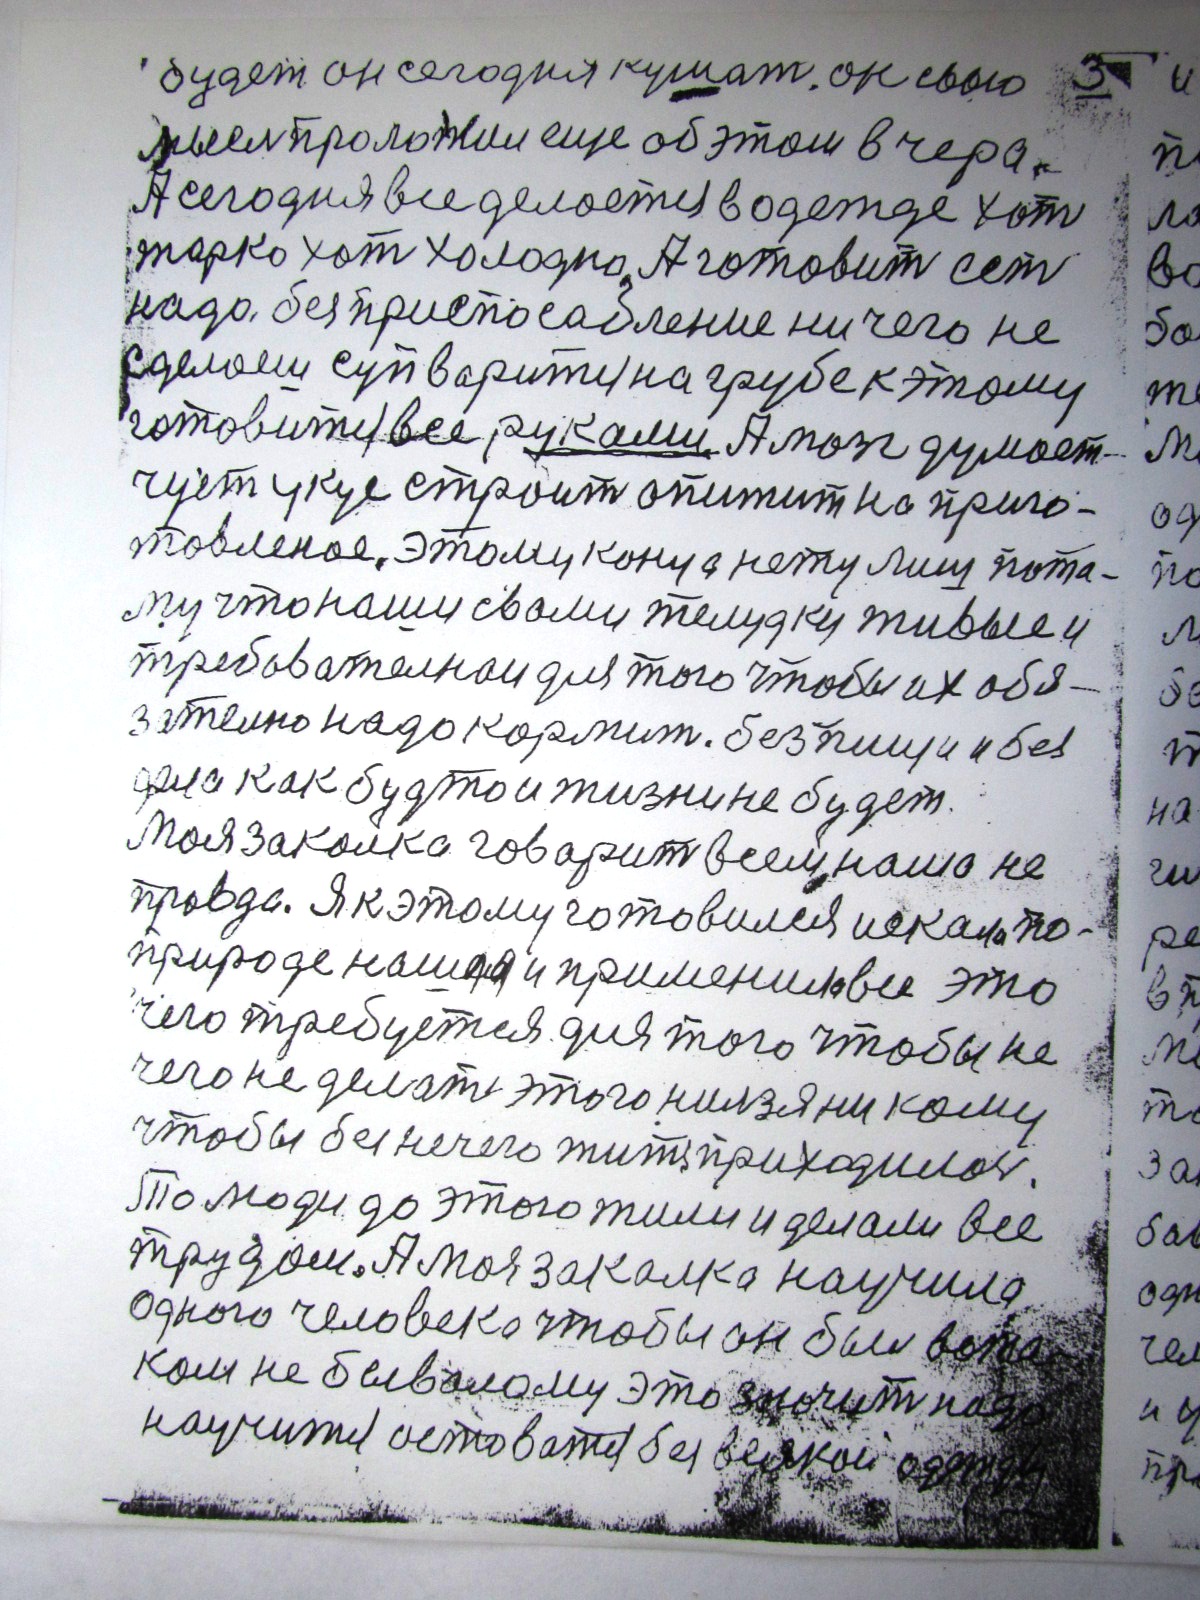 будет он сегодня кушат. он свою 3
мысл проложил еще об этом вчера.
А сегодня все делоется в одежде хот
жарко хот холодно. А готовит ест
надо. без приспосабление ни чего не
сделоеш суп варится на грубе к этому
готовится все руками. А мозг думоет
чует строит на приго-
товленое. этому конца нету потa-
му что наши свами желудки живые и
требователнаи для того чтобы их обя-
зателно надо кормит. без пищи и без
дела как будто и жизни не будет.
Моя закалка говорит всем наша не
правда. Я к этому готовился искал по
природе и применил все это
чего требуется для того чтобы не
чего не делат этого нилзя ни кому
чтобы без нечего жит приходилос.
То люди до этого жили и делали все
трудом. А моя закалка научила
одного человека чтобы он был вота-
ком не бывалому это значит надо
научится остоватся без всякой одежды
и